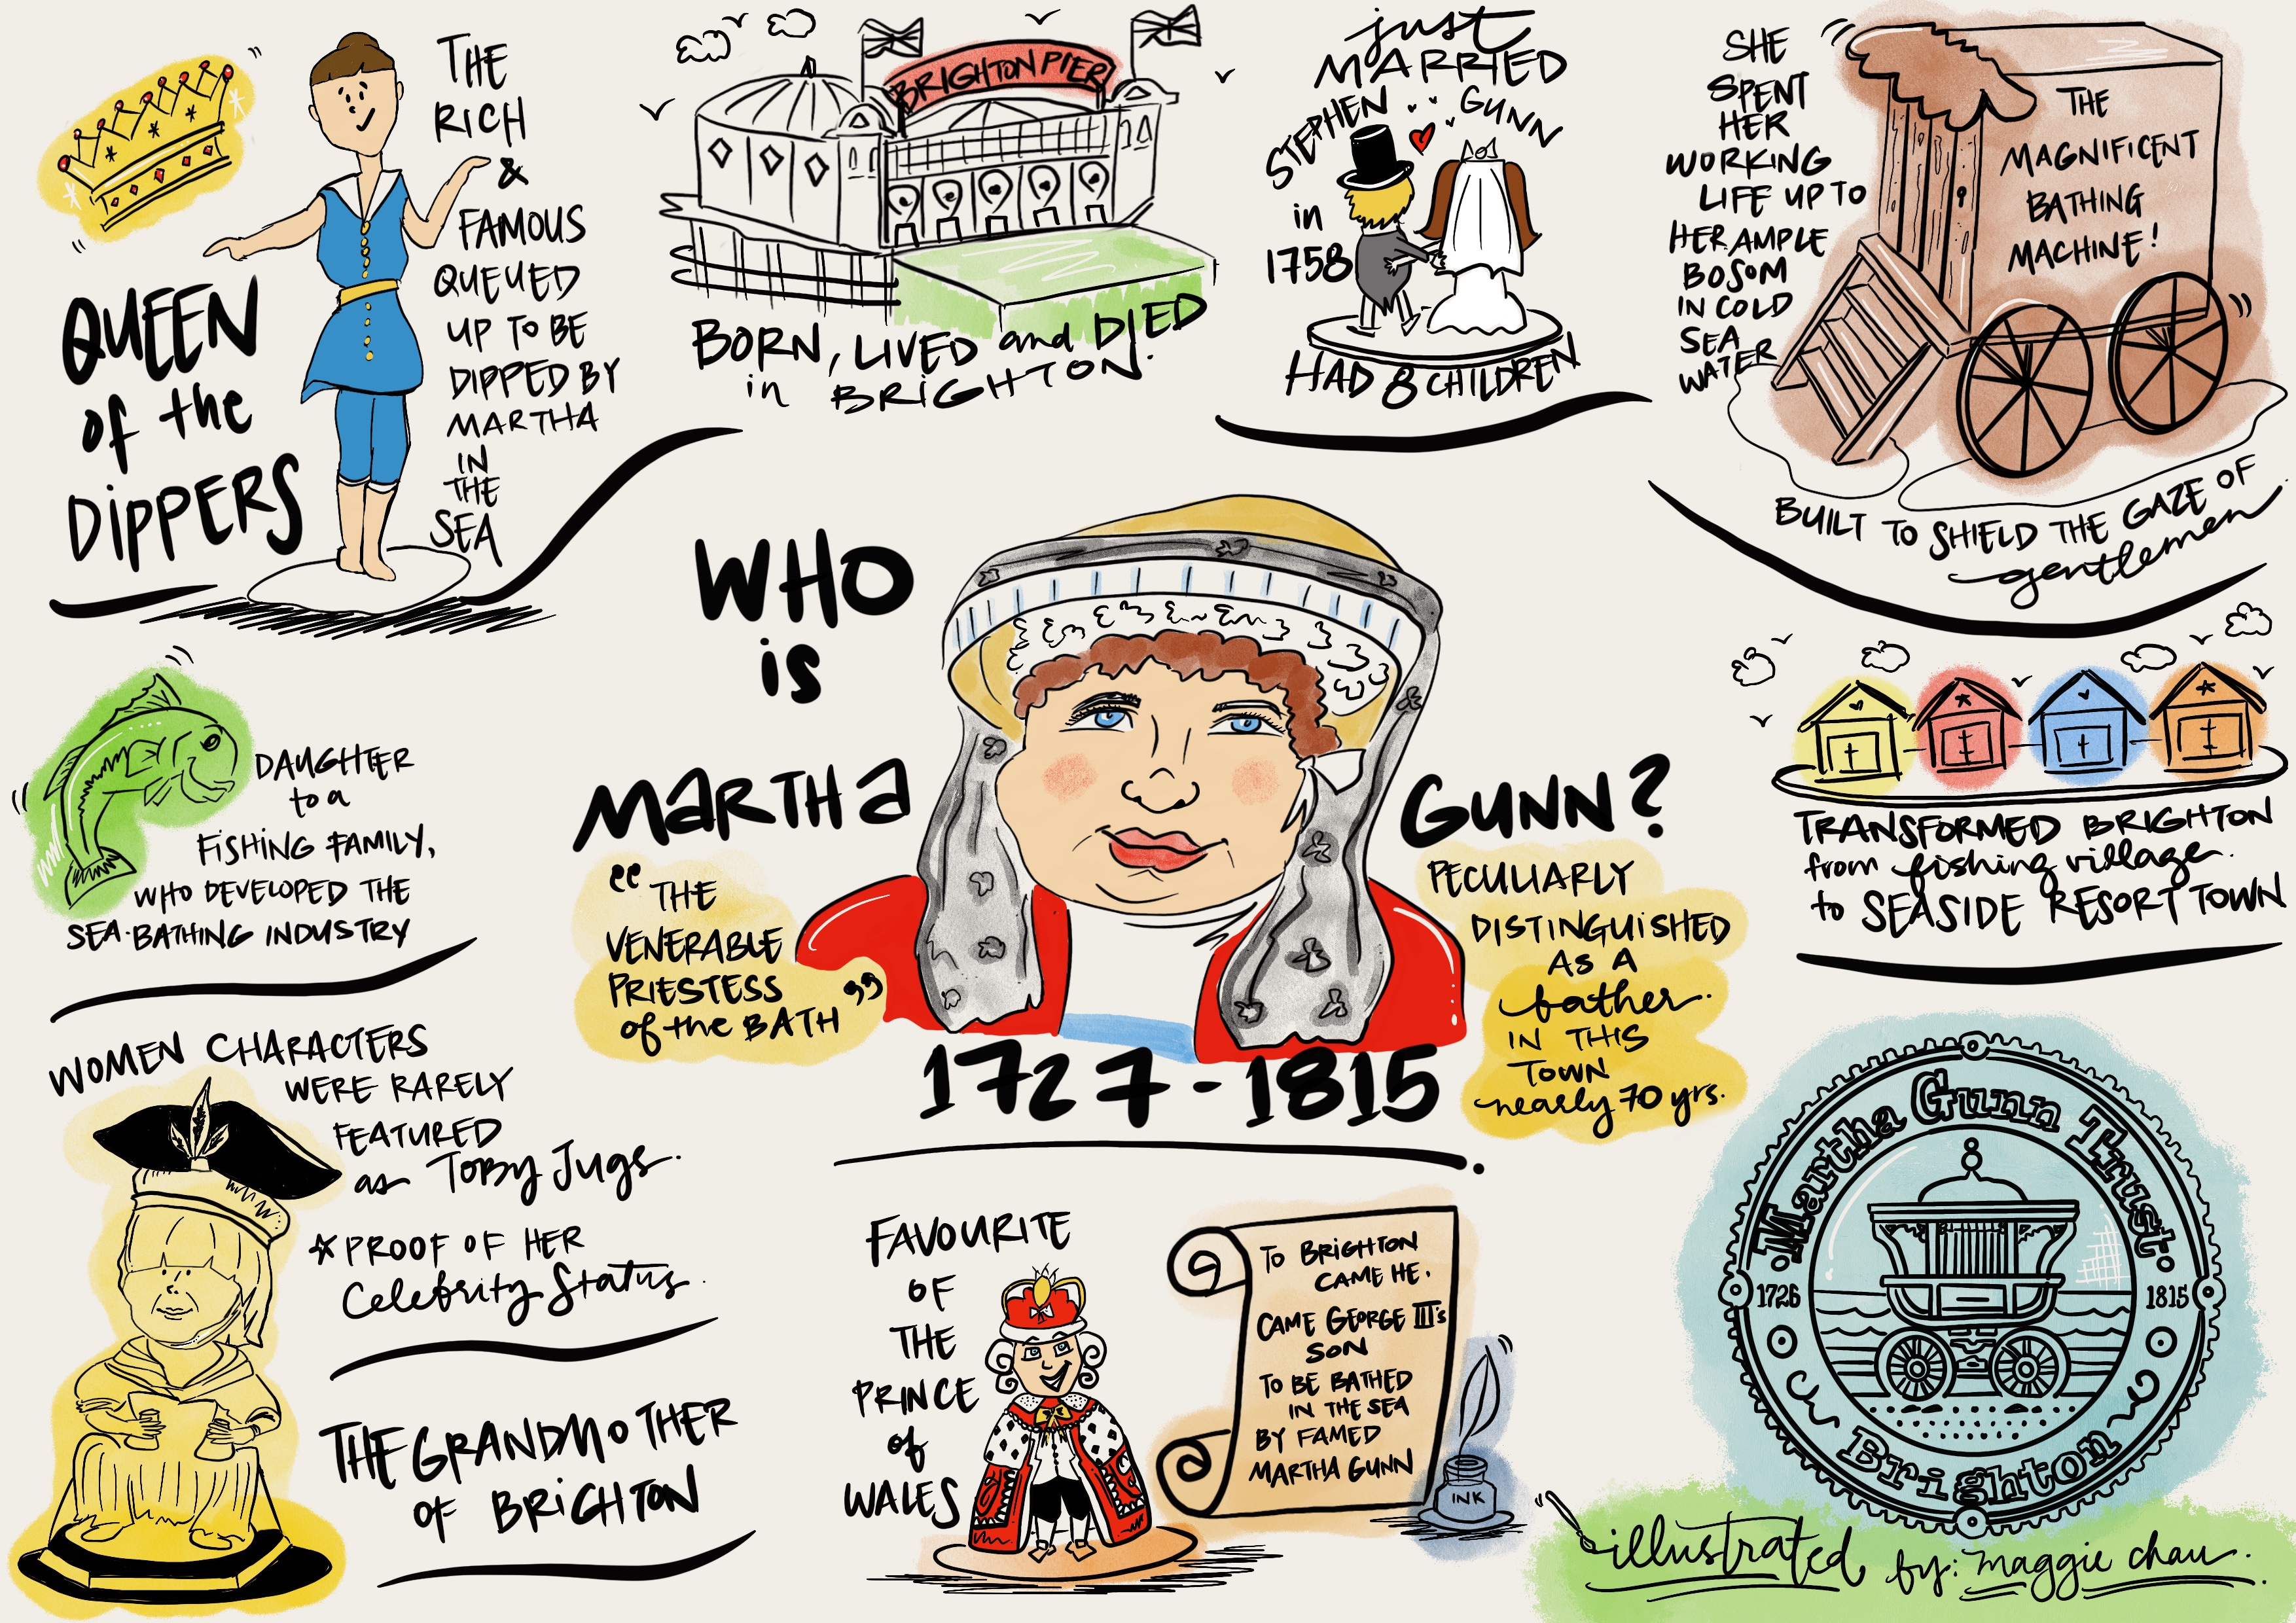 QUEEN
of the
DIPPERS
THE
RICH
&
FAMOUS
QUEUED
UP TO BE
DIPPED BY
MARTHA
IN
THE
SEA
BRIGHTON PIER
BORN, LIVED and DIED
in BRIGHTON.
just
MARRIED
STEPHEN GUNN
in
1758
HAD 8 CHILDREN
SHE
SPENT
HER
WORKING
LIFE UP TO
HER AMPLE
BOSOM
IN COLD
SEA
WATER
THE
MAGNIFICENT
BATHING
MACHINE!
BUILT TO SHIELD THE GAZE OF
gentlemen
WHO
is
MARTHA GUNN?
"THE
VENERABLE
PRIESTESS
of the BATH"
PECULIARLY
DISTINGUISHED
AS A
bather.
IN THIS
TOWN
nearly 70 yrs.
1727-1815
DAUGHTER
to a
FISHING FAMILY,
WHO DEVELOPED THE
SEA-BATHING INDUSTRY
TRANSFORMED BRIGHTON
from fishing village.
to SEASIDE RESORT TOWN
WOMEN CHARACTERS
WERE RARELY
FEATURED
as TOBY Jugs.
PROOF OF HER
Celebrity Status.
THE GRANDMOTHER
OF BRIGHTON
FAVOURITE
OF
THE
PRINCE
of
WALES
TO BRIGHTON
CAME HE.
CAME GEORGE III's
SON
TO BE BATHED
IN THE SEA
BY FAMED
MARTHA GUNN
INK
Martha Gunn Trust
1726 1815
Brighton
illustrated by: maggie chau.